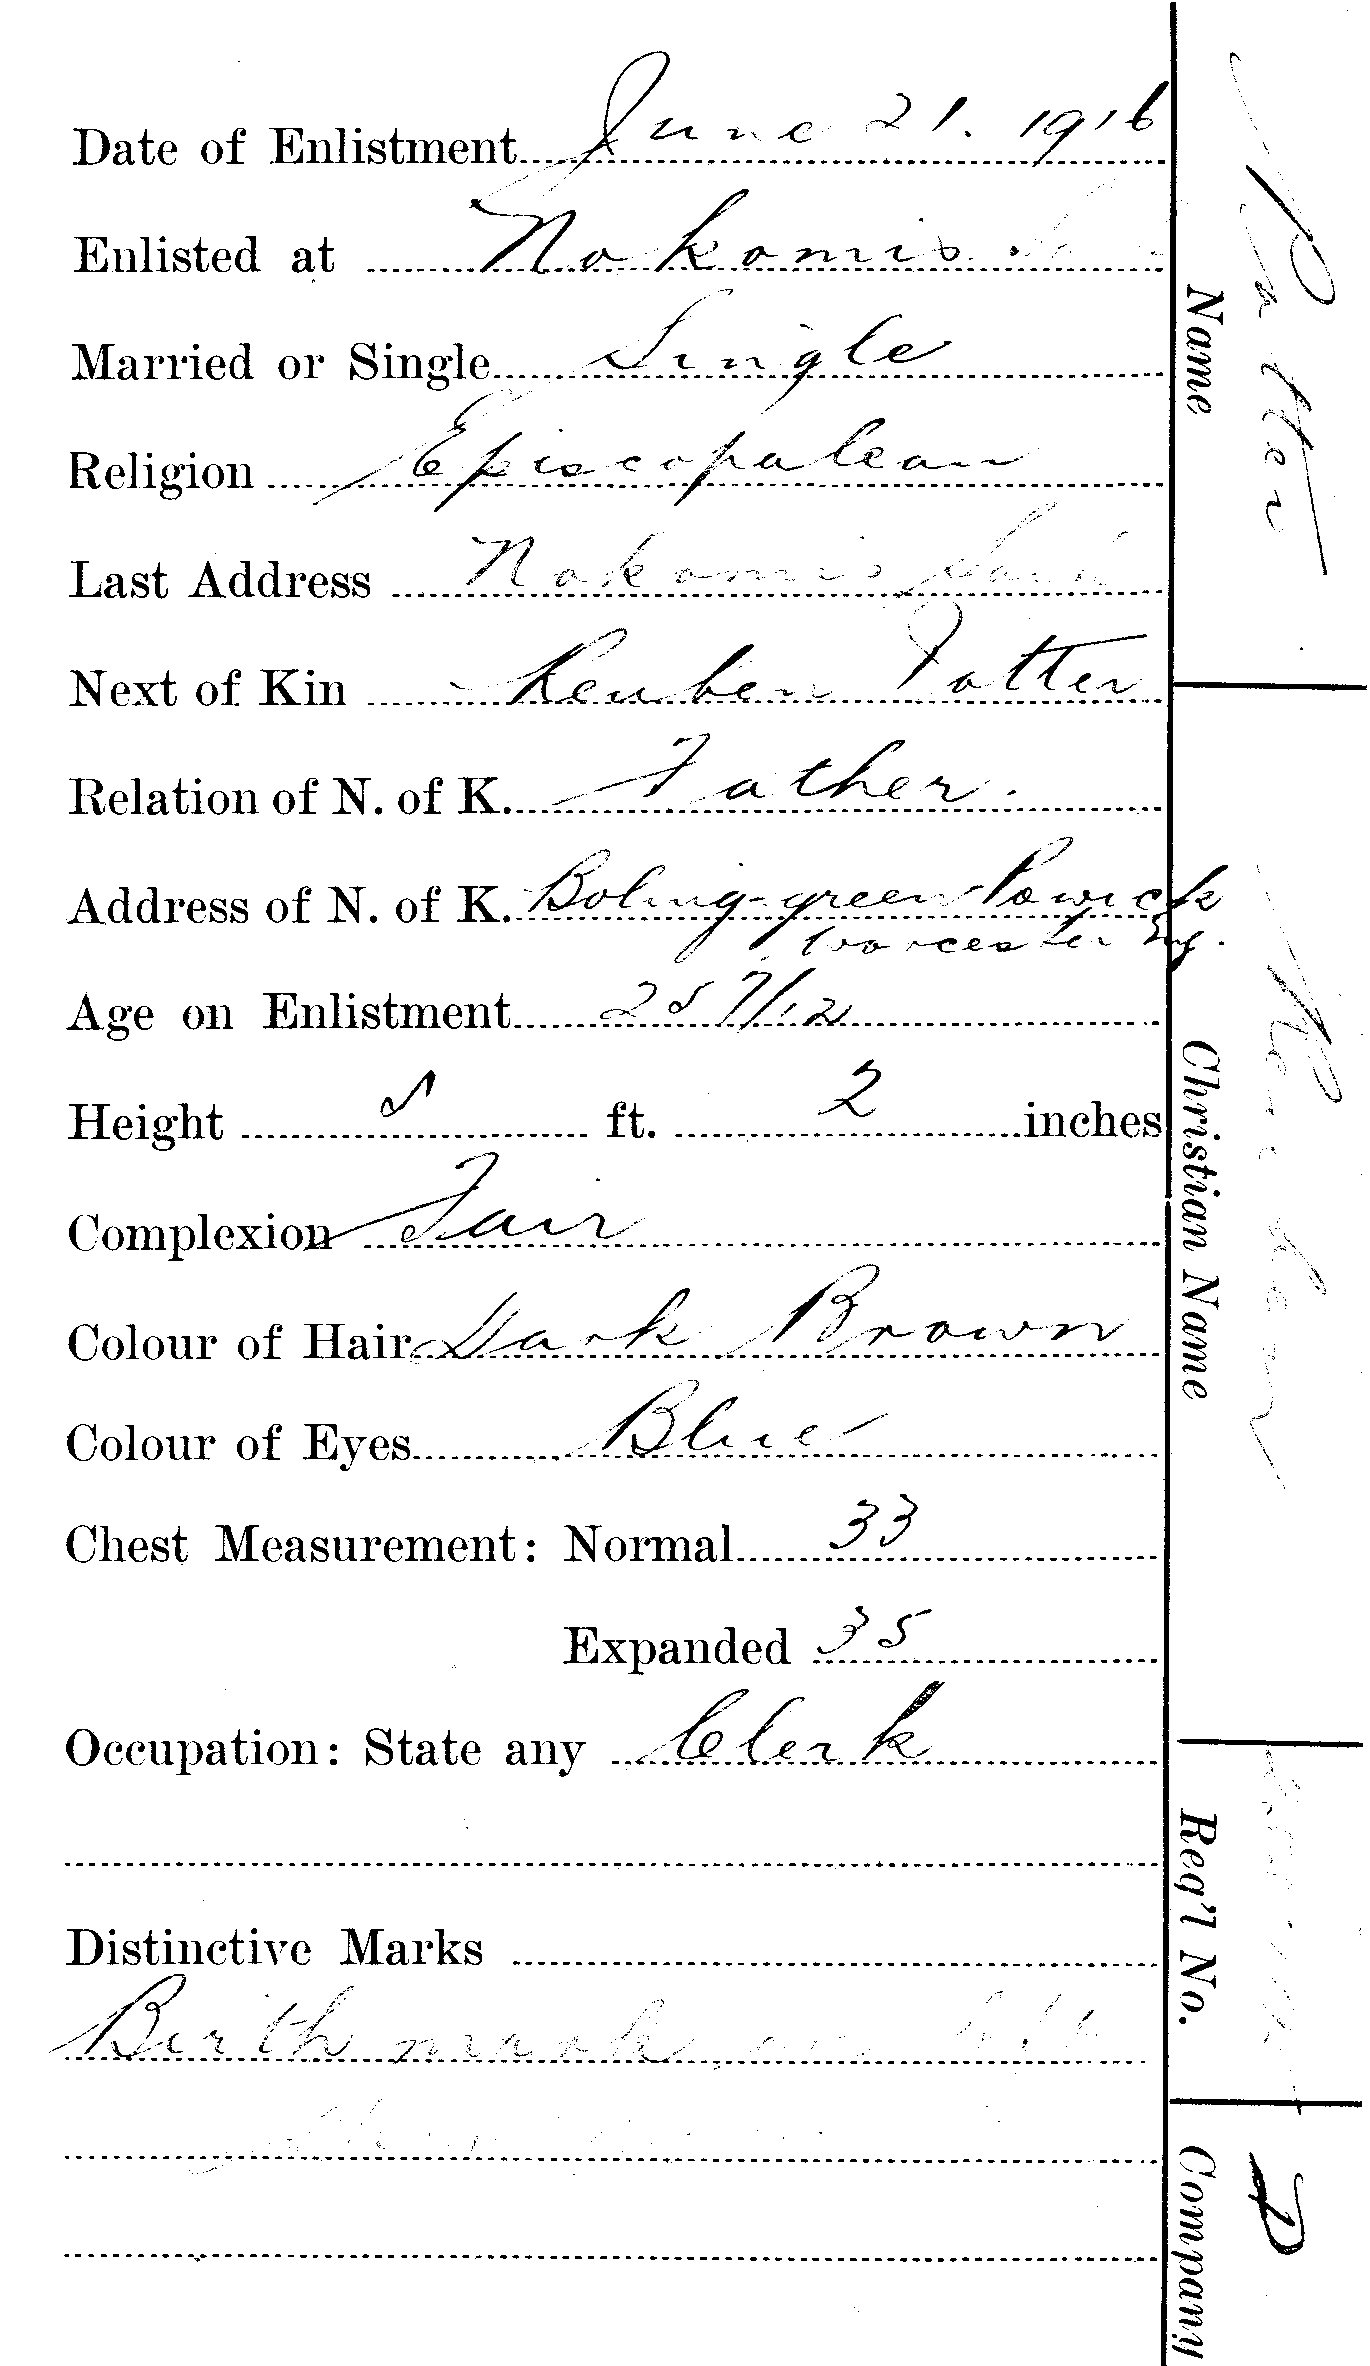 Date of Enlistment June 21. 1916
Enlisted at Nokomis
Married or Single Single
Religion Episcopalean
Last Address Nokomis Sask
Next of Kin Reuben Potter
Relation of N. of K. Father.
Address of N. of K. Boling-green Powick
Worcester Eng.
Age on Enlistment 25 7/12
Height 5 ft. 2 inches
Complexion Fair
Colour of Hair Dark Brown
Colour of Eyes Blue
Chest Measurement: Normal 33
Expanded 35
Occupation: State any Clerk
Distinctive Marks
Birth mark on left
Name Potter
Christian Name Reuben
Reg'l No.
Company D